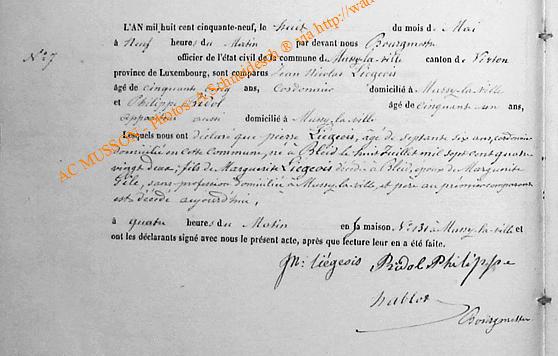 L'AN mil huit cent cinquante-neuf, le huit du mois de Mai
No 7
à Neuf heures du Matin par devant nous Bourgmestre
officier de l'état civil de la commune de Mussy-la-ville canton de Virton
province de Luxembourg, sont comparus Jean Nicolas Liegeois
âgé de cinquante cinq ans, Cordonnier domicilié à Mussy-la-ville
et Philippe Bidol âgé de cinquante un ans,
aussi domicilié à Mussy-la-ville
Lesquels nous ont déclaré que pierre Liégeois, âgé de septante six ans, cordonnier
domicilié en cette commune, né à Bleid le huit Juillet mil sept cent quatre
vingt deux, fils de Marguerite Liegeois décédé à Bleid, époux de Marguerite
sans profession domiciliée à Mussy-la-ville, et père au premier comparant
est décédé aujourd'hui,
à quatre heures du Matin en sa maison. No 131 à Mussy-la-ville et
ont les déclarants signé avec nous le présent acte, après que lecture leur en a été faite.
jn: liégeois Bidol Philippe
Bourgmestre
AC MUSSON - Photos A. Schneidesch ® via http://www.